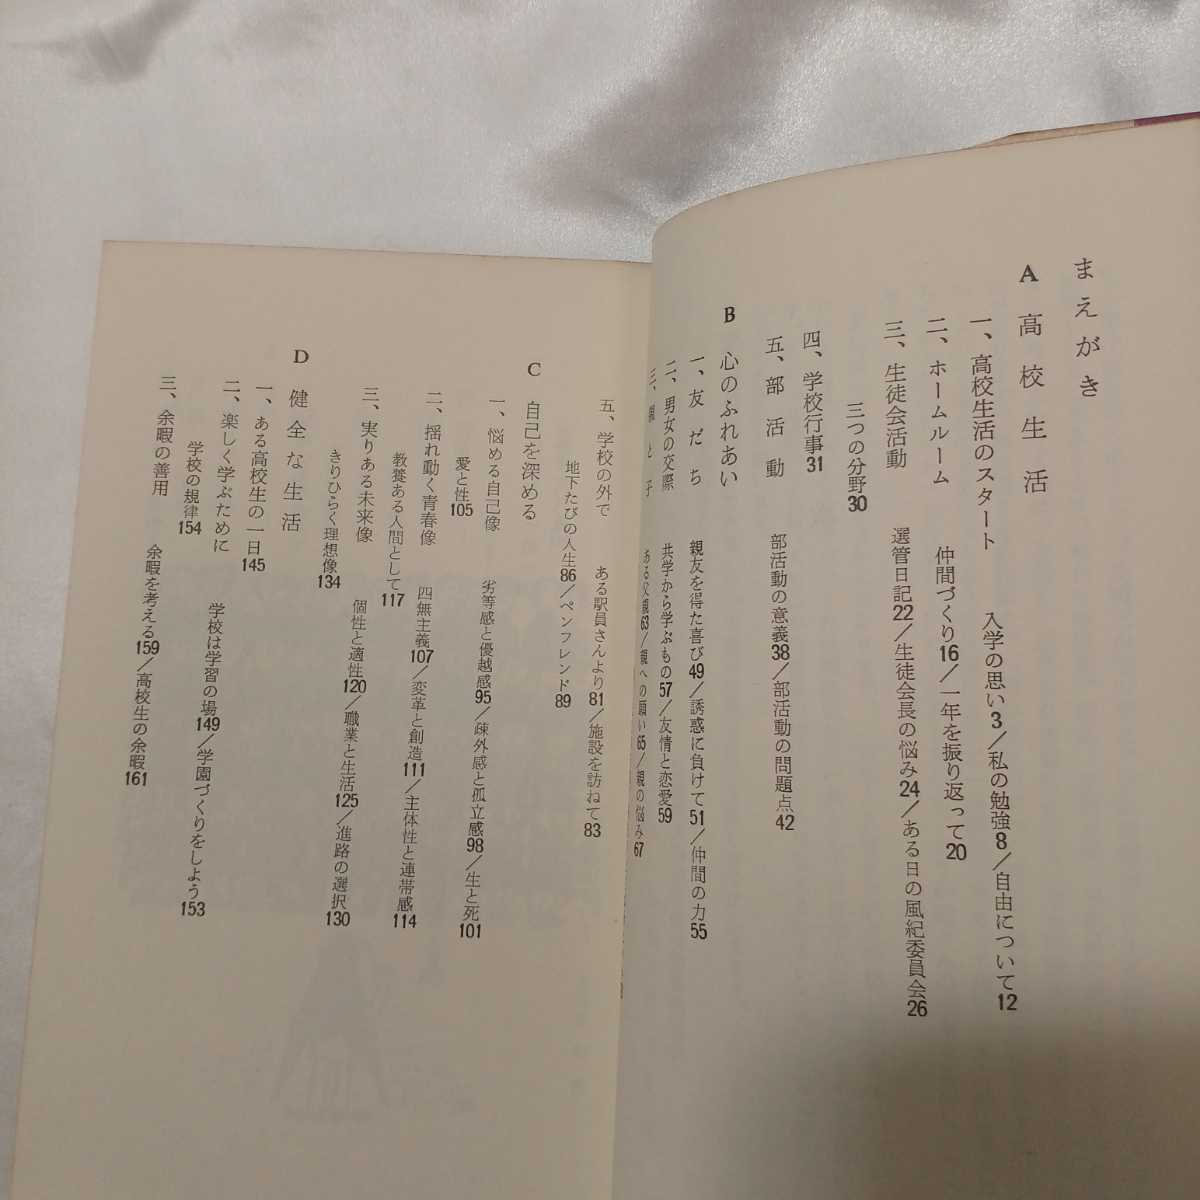 まえがき
A 高校生活
一、高校生活のスタート 入学の思い3／私の勉強8／自由について12
二、ホームルーム 仲間づくり16／一年を振り返って20
三、生徒会活動 選管日記22／生徒会長の悩み24／ある日の風紀委員会26
三つの分野30
四、学校行事31
五、部活動 部活動の意義38／部活動の問題点42
B 心のふれあい
一、友だち 親友を得た喜び49／誘惑に負けて51／仲間の力55
二、男女の交際 共学から学ぶもの57／友情と恋愛59
三、親と子 ある父親63／親への願い65／親の悩み67
五、学校の外で ある駅員さんより81／施設を訪ねて83
地下たびの人生86／ペンフレンド89
C 自己を深める
一、悩める自己像 劣等感と優越感95／疎外感と孤立感98／生と死101
愛と性105
二、揺れ動く青春像 四無主義107／変革と創造111／主体性と連帯感114
教養ある人間として117
三、実りある未来像 個性と適性120／職業と生活125／進路の選択130
きりひらく理想像134
D 健全な生活
一、ある高校生の一日145
二、楽しく学ぶために 学校は学習の場149／学園づくりをしよう153
学校の規律154
三、余暇の善用 余暇を考える159／高校生の余暇161